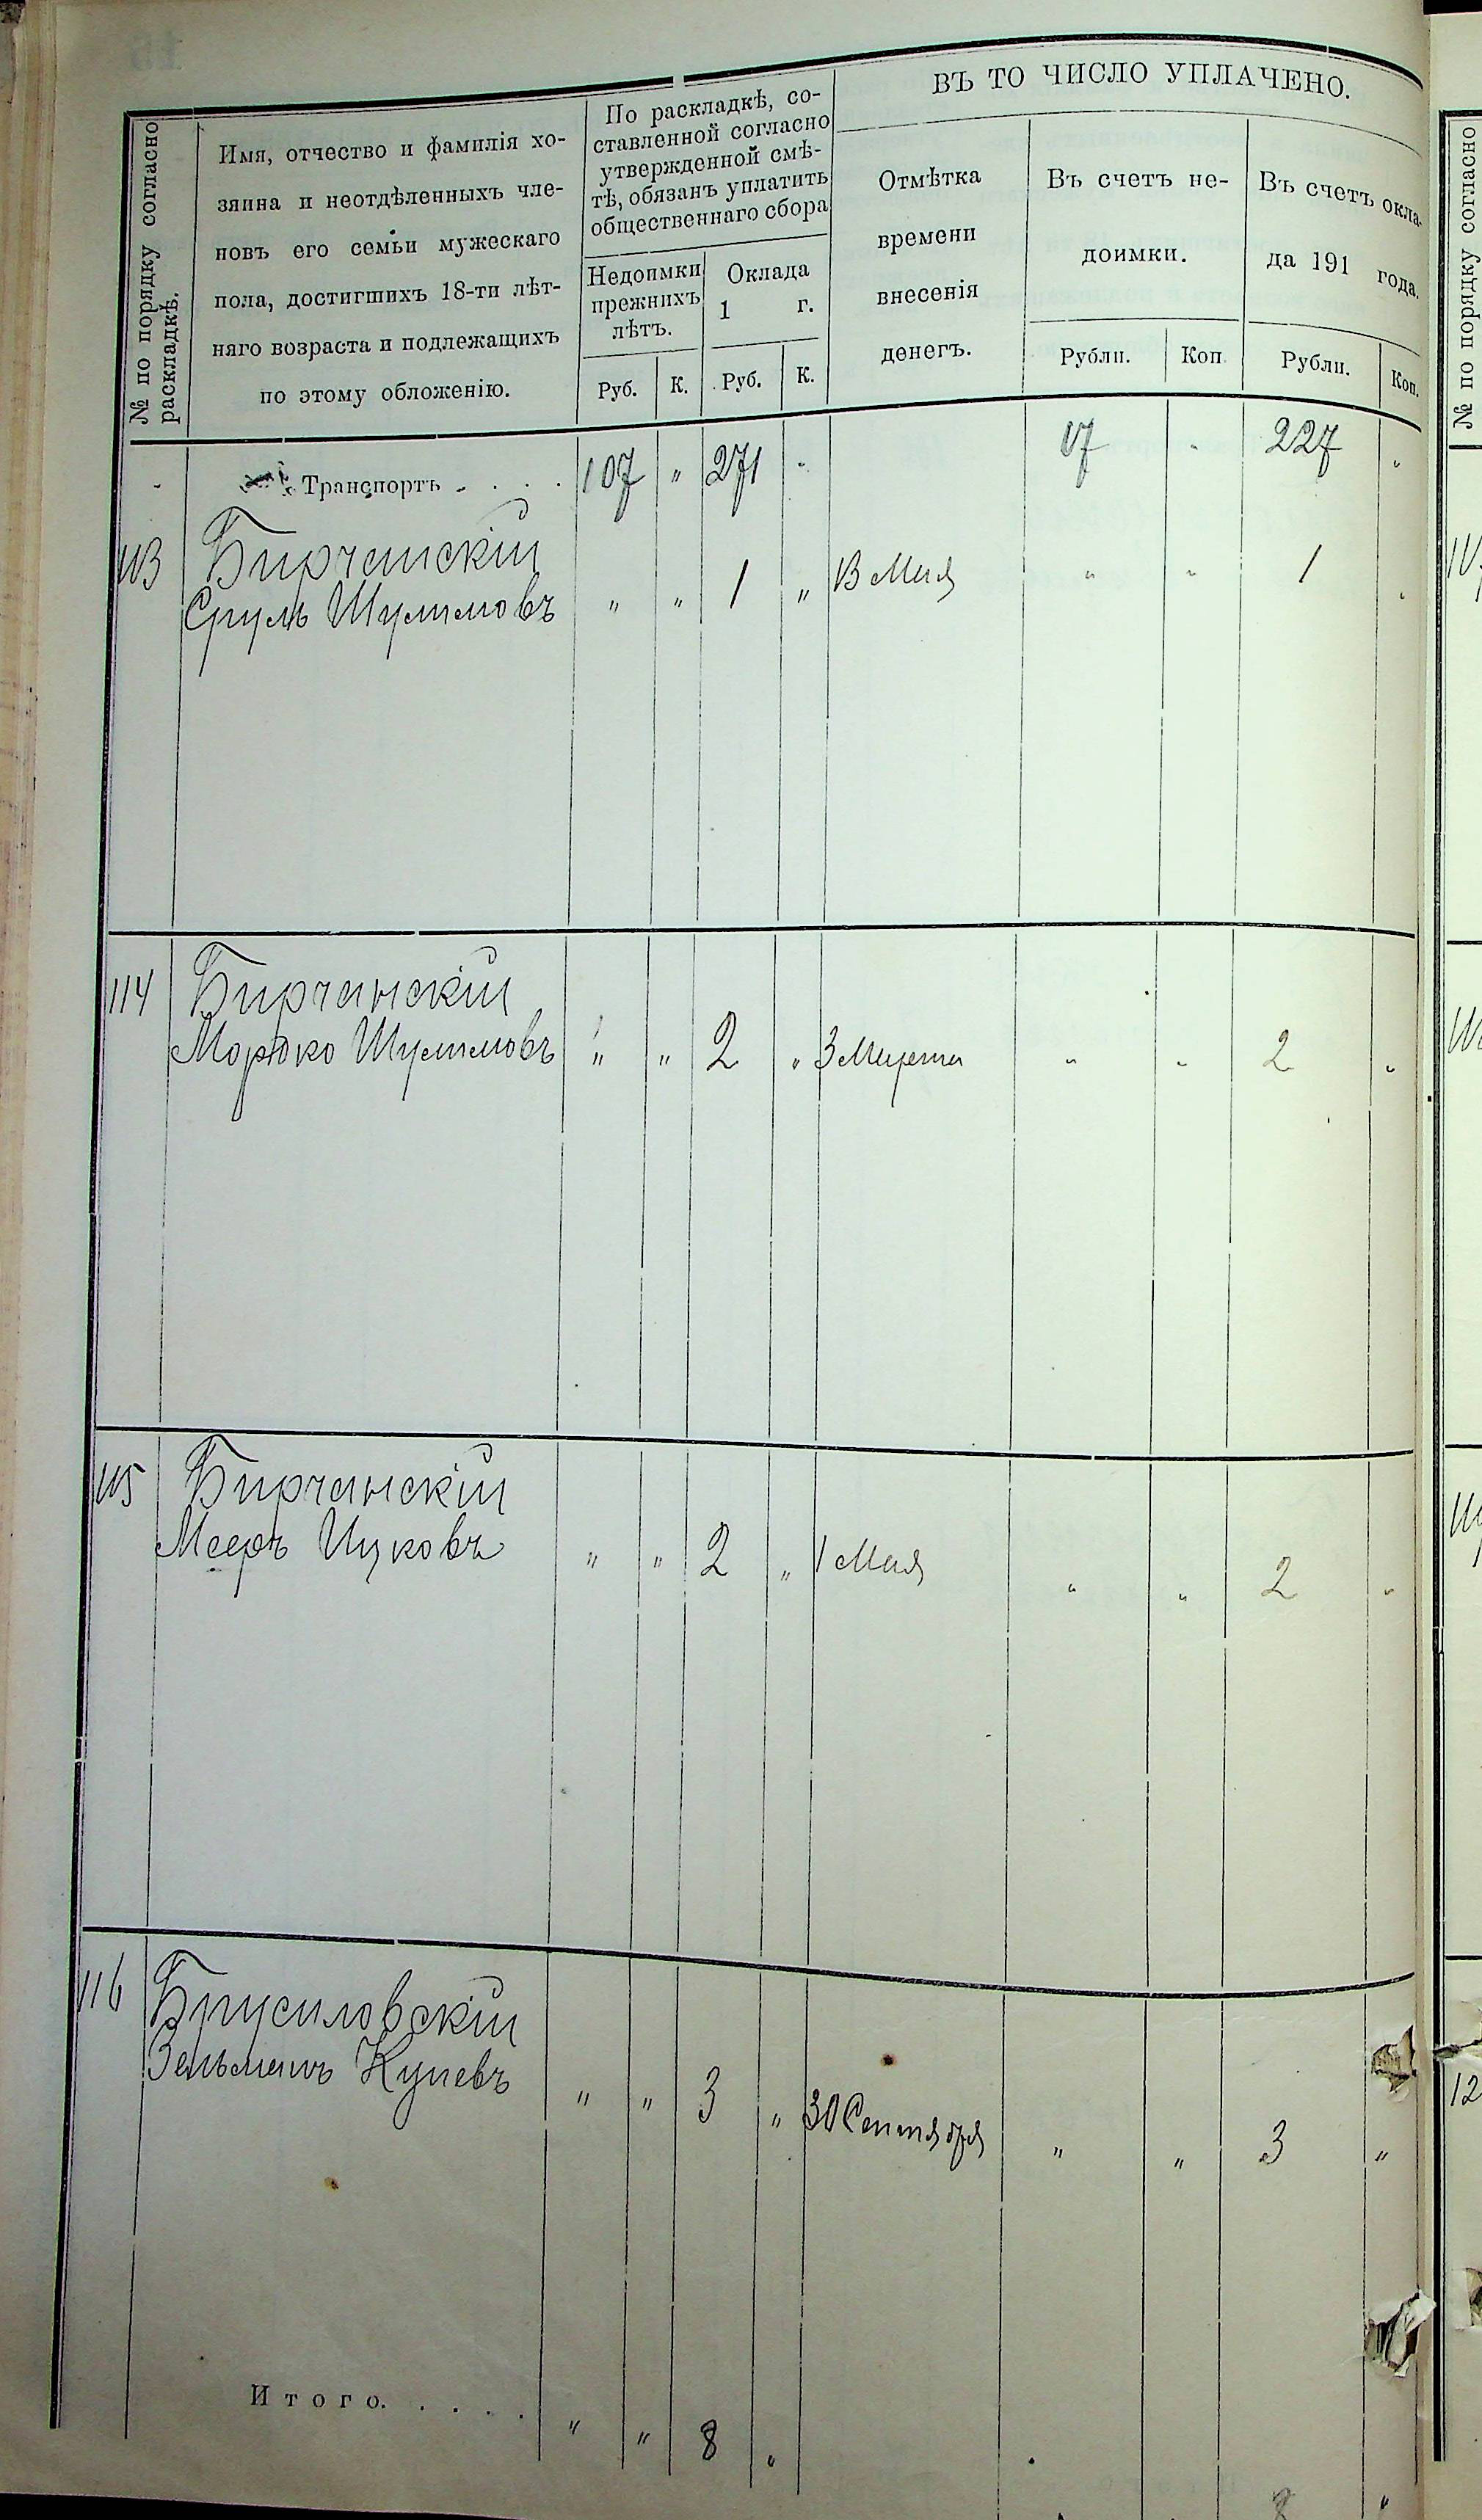 ВЪ ТО ЧИСЛО УПЛАЧЕНО.
№ по порядку согласно
раскладкѣ.
Имя, отчество и фамилія хо-
зяина и неотдѣленныхъ чле-
новъ его семьи мужескаго
пола, достигшихъ 18-ти лѣт-
няго возраста и подлежащихъ
по этому обложенію.
По раскладкѣ, со-
ставленной согласно
утвержденной смѣ-
тѣ, обязанъ уплатить
общественнаго сбора
Недоимки
прежнихъ
лѣтъ.
Оклада
1 г.
Руб. К. Руб. К.
Отмѣтка
времени
внесенія
денегъ.
Въ счетъ не-
доимки.
Рубли. Коп.
Въ счетъ окла-
да 191 года.
Рубли. Коп.
Транспортъ . . . . 107 " 271 " 17 " 227 "
113 Бирчанскій
Сруль Шулимовъ " " 1 " 13 Мая " " 1 "
114 Бирчанскій
Мордко Шулимовъ " " 2 " 3 Марта " " 2 "
115 Бирчанскій
Мееръ Ицковъ " " 2 " 1 Мая " " 2 "
116 Брусиловскій
Зельманъ Куневъ " " 3 " 30 Сентября " " 3 "
Итого. . . . . " " 8 "
8 "
№ по порядку согласно
12